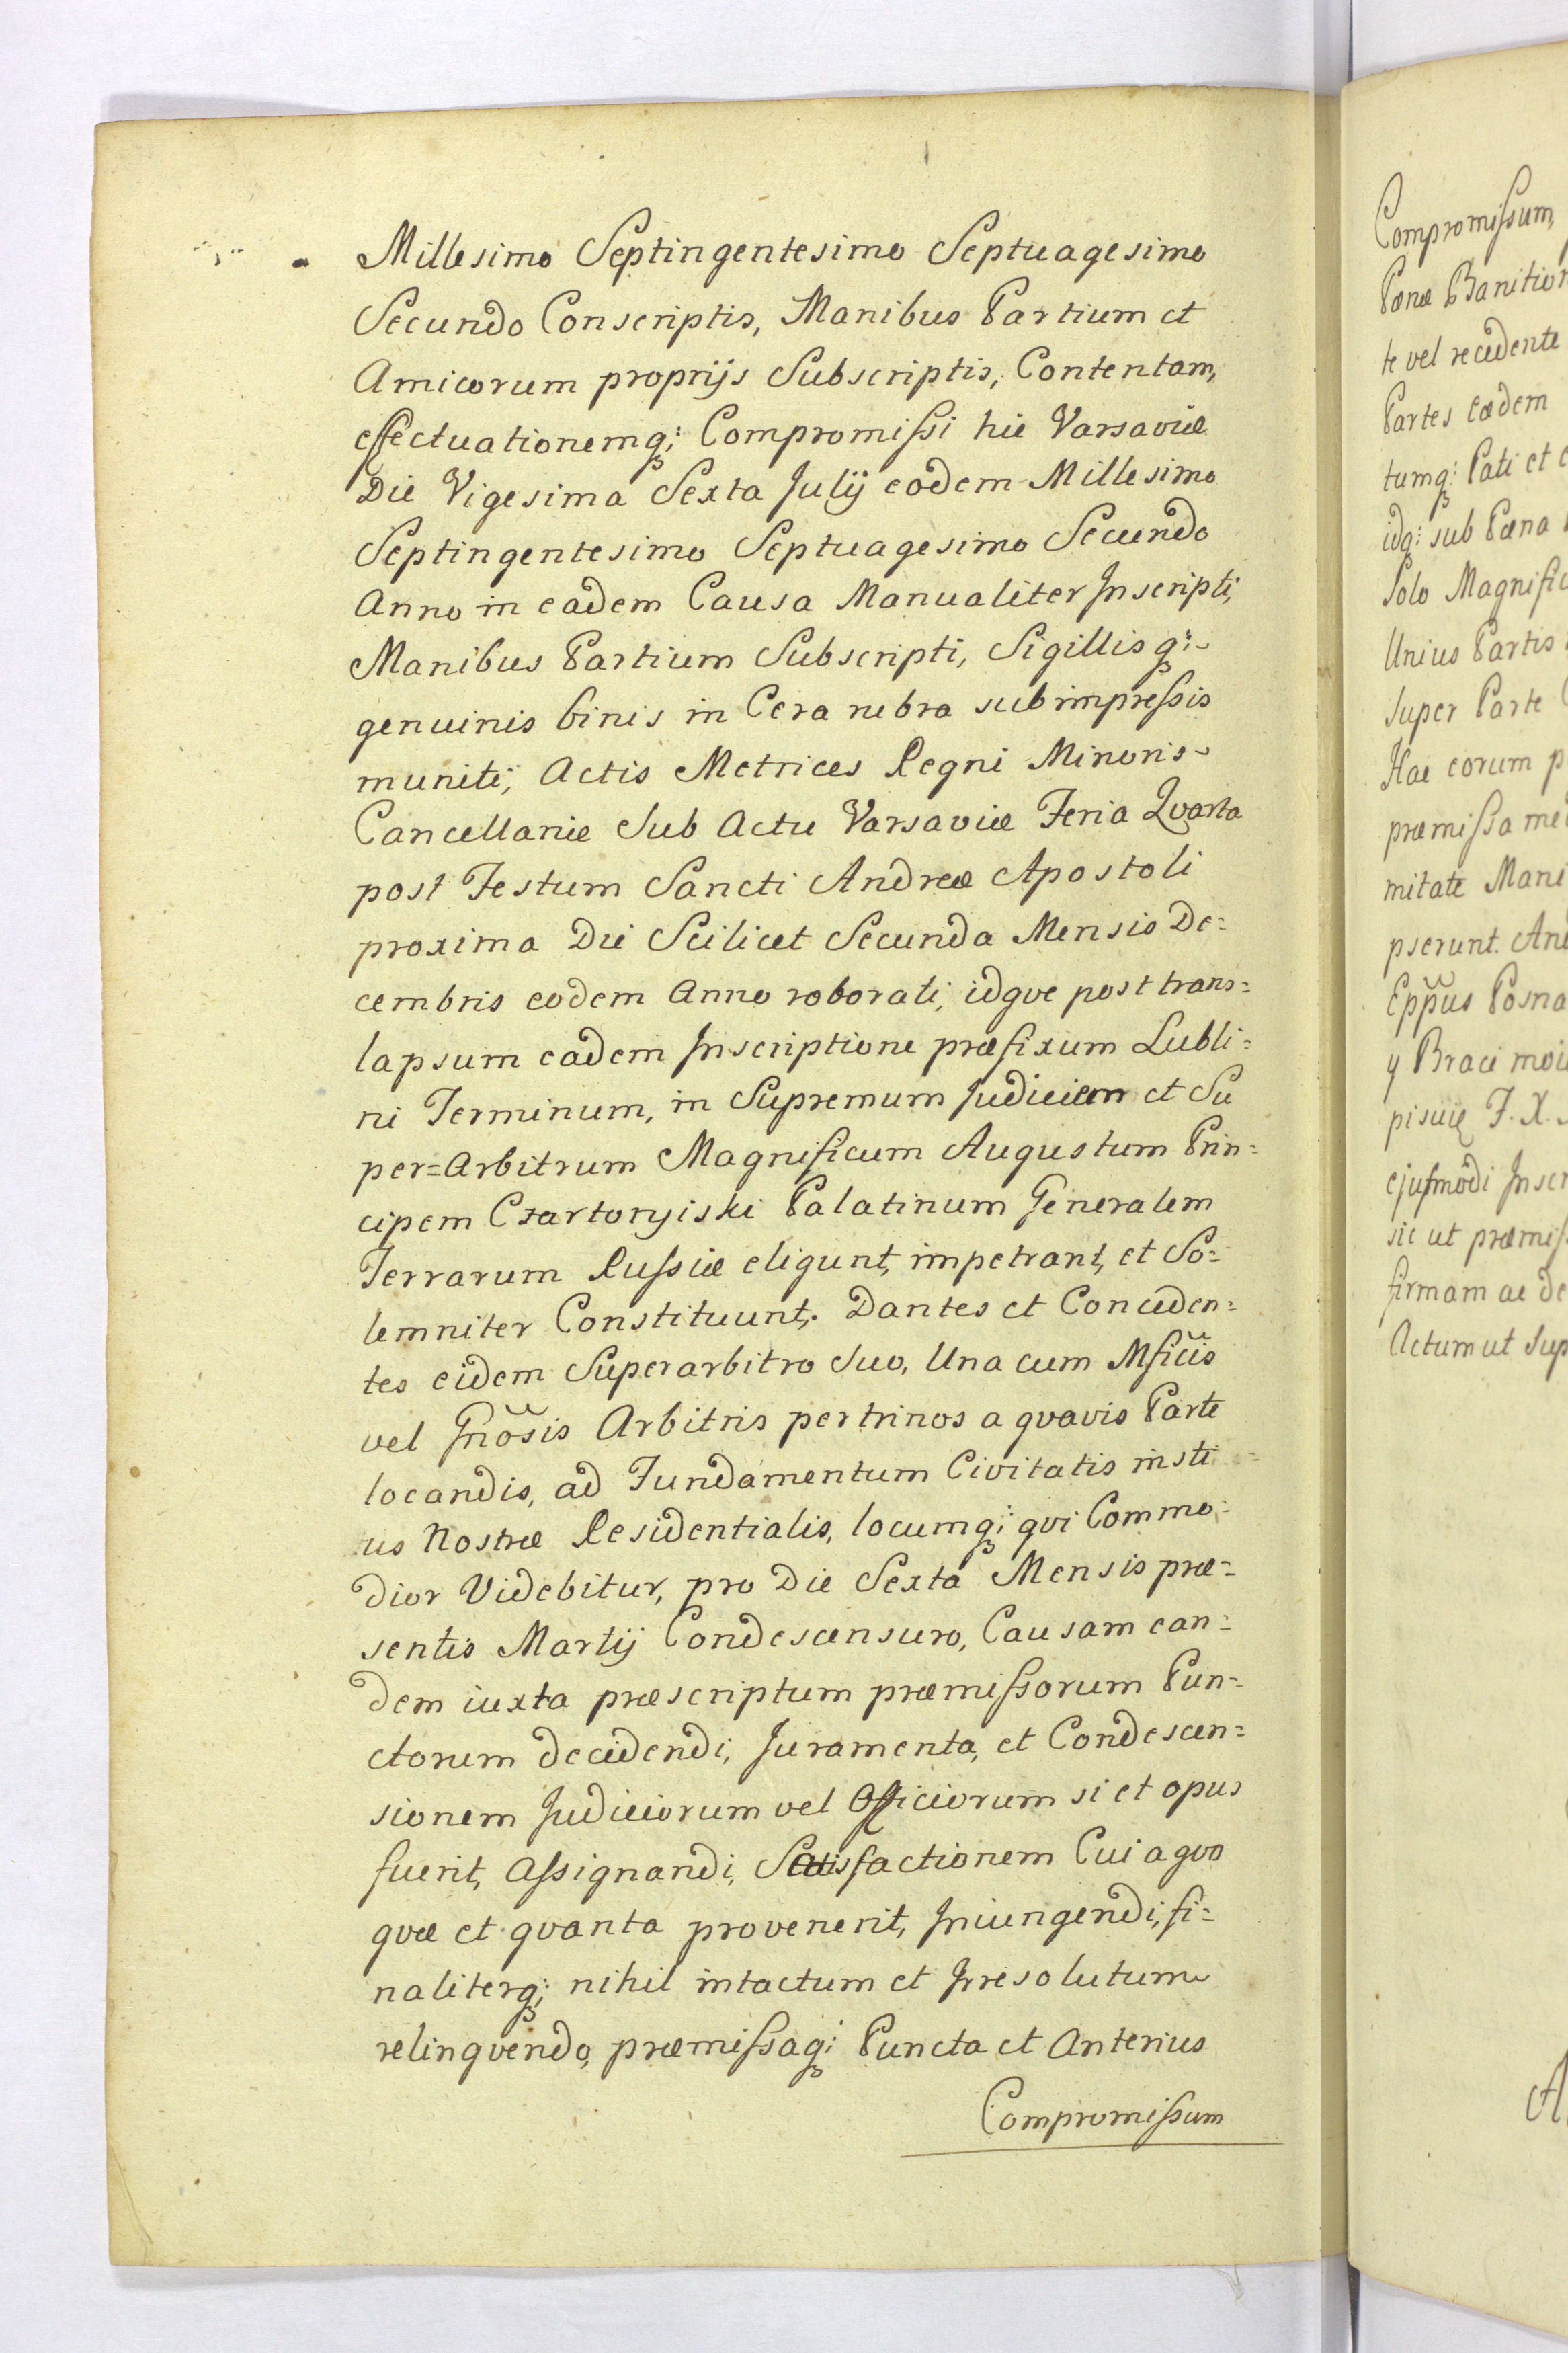 Millesimo Septingentesimo Septuagesimo
Secundo Conscriptis, Manibus Partium et
Amicorum proprijs Subscriptis, Contentam,
effectuationemq; Compromissi hic Varsaviæ
Die Vigesima Sexta Julij eodem Millesimo
Septingentesimo Septuagesimo Secundo
Anno in eadem Causa Manualiter Inscripti,
Manibus Partium Subscripti, Sigillis q;
genuinis binis in Cera rubra subimpressis
muniti, Actis Metrices Regni Minoris
Cancellariæ Sub Actu Varsaviæ Feria Qvarta
post Festum Sancti Andreæ Apostoli
proxima Die Scilicet Secunda Mensis De=
cembris eodem Anno roborati, idqve post trans=
lapsum eadem Inscriptione præfixum Lubli=
ni Terminum, in Supremum Judicem et Su
per=Arbitrum Magnificum Augustum Prin=
cipem Czartoryiski Palatinum Generalem
Terrarum Russiæ eligunt, impetrant, et So=
lemniter Constituunt. Dantes et Conceden=
tes eidem Superarbitro Suo, Una cum Mficis
vel Gnosis Arbitris per trinos a qvavis Parte
locandis, ad Fundamentum Civitatis insti
us Nostræ Residentialis, locumq; qvi Commo=
dior Videbitur, pro Die Sexta Mensis præ=
sentis Martij Condescensuro, Causam ean=
dem iuxta præscriptum præmissorum Pun=
ctorum decidendi, Juramenta, et Condescen=
sionem Judiciorum vel Officiorum si et opus
fuerit, Assignandi, Satisfactionem Cui a qvo
qvæ et qvanta provenerit, Iniungendi, fi=
naliterq; nihil intactum et Irresolutum
relinqvendo, præmissaq; Puncta et Anterius
Compromissum
Compromissum,
Pœnæ Banition
te vel recedente
Partes eædem
tumq; Pati et
idq; sub Pœna
Solo Magnific
Unius Partis
Super Parte
Hac eorum p
præmissa med
mitate Mani
pserunt. And
Eppus Posna
y Braci moi
pisuię F. X.
ejusmodi Inscr
sic ut præmiss
firmam ac de
Actum ut Sup